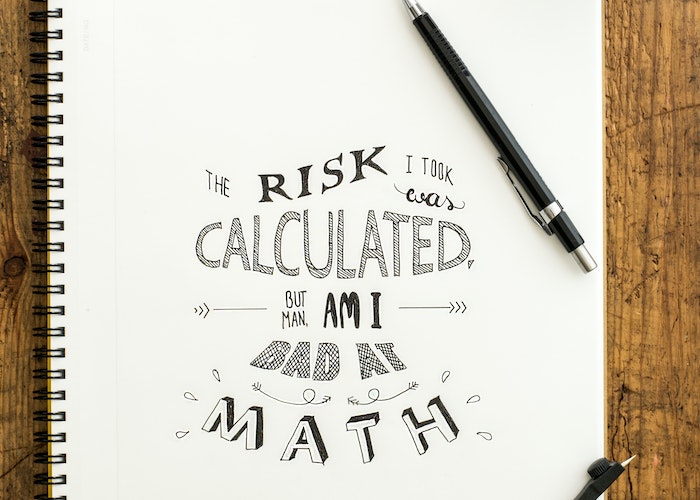 THE RISK I TOOK was
CALCULATED,
BUT MAN, AM I
BAD AT
MATH